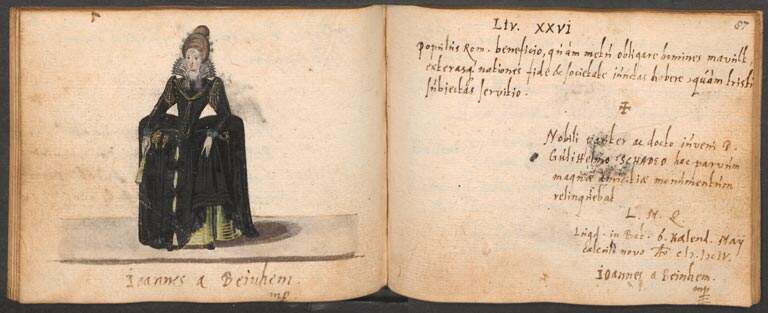 Joannes a Beinhem.
mp.
Liv. XXVI
87
Populus Rom. beneficio, quàm metu obligare homines mavult,
exterasq. nationes fide & societate iunctas habere, quàm tristi
subiectas servitio.
Nobili pariter ac docto iuveni D.
Gulielmo hoc parvum
magnæ amicitiæ monumentum
relinquebat
L. M. Q.
Lugd. in Bat. 6. Kalend. Maÿ
calculo novo
Joannes a Beinhem.
mp